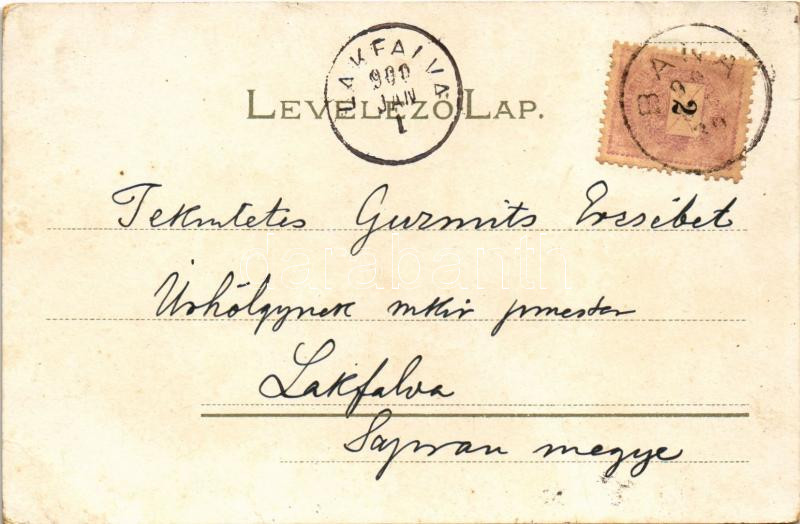 LAKFALVA
900
JAN
1
LEVELEZŐ LAP.
BA
2
Tekintetes Guzmits Erzsébet
Úrhölgynek mkir pmester
Lakfalva
Sopron megye
darabanth